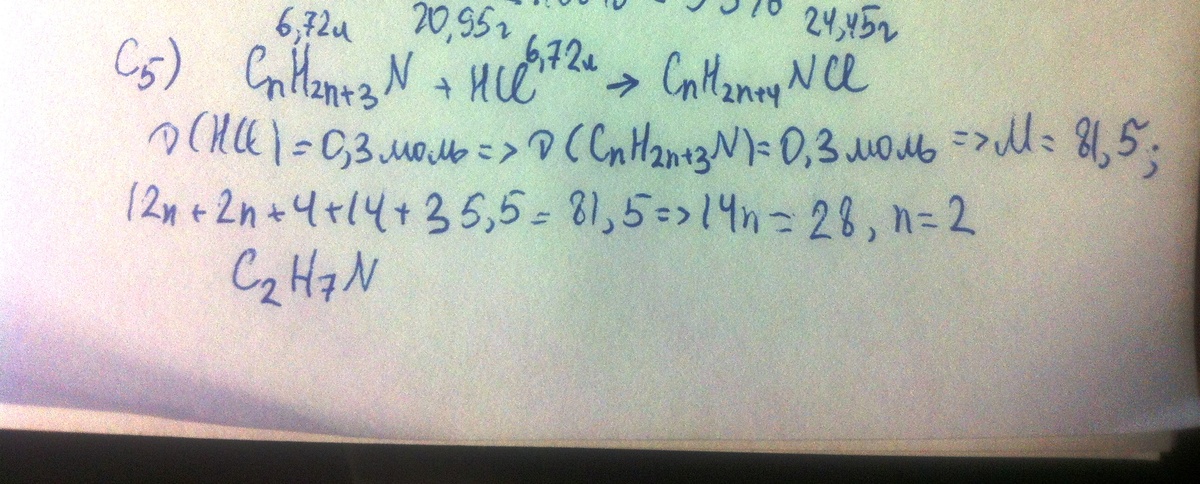 6,72л 20,95г 24,45г
C5) CnH2n+3N + HCl 6,72л → CnH2n+4NCl
ν(HCl)=0,3моль=>ν(CnH2n+3N)=0,3моль=>M=81,5;
12n+2n+4+14+35,5=81,5=>14n=28, n=2
C2H7N